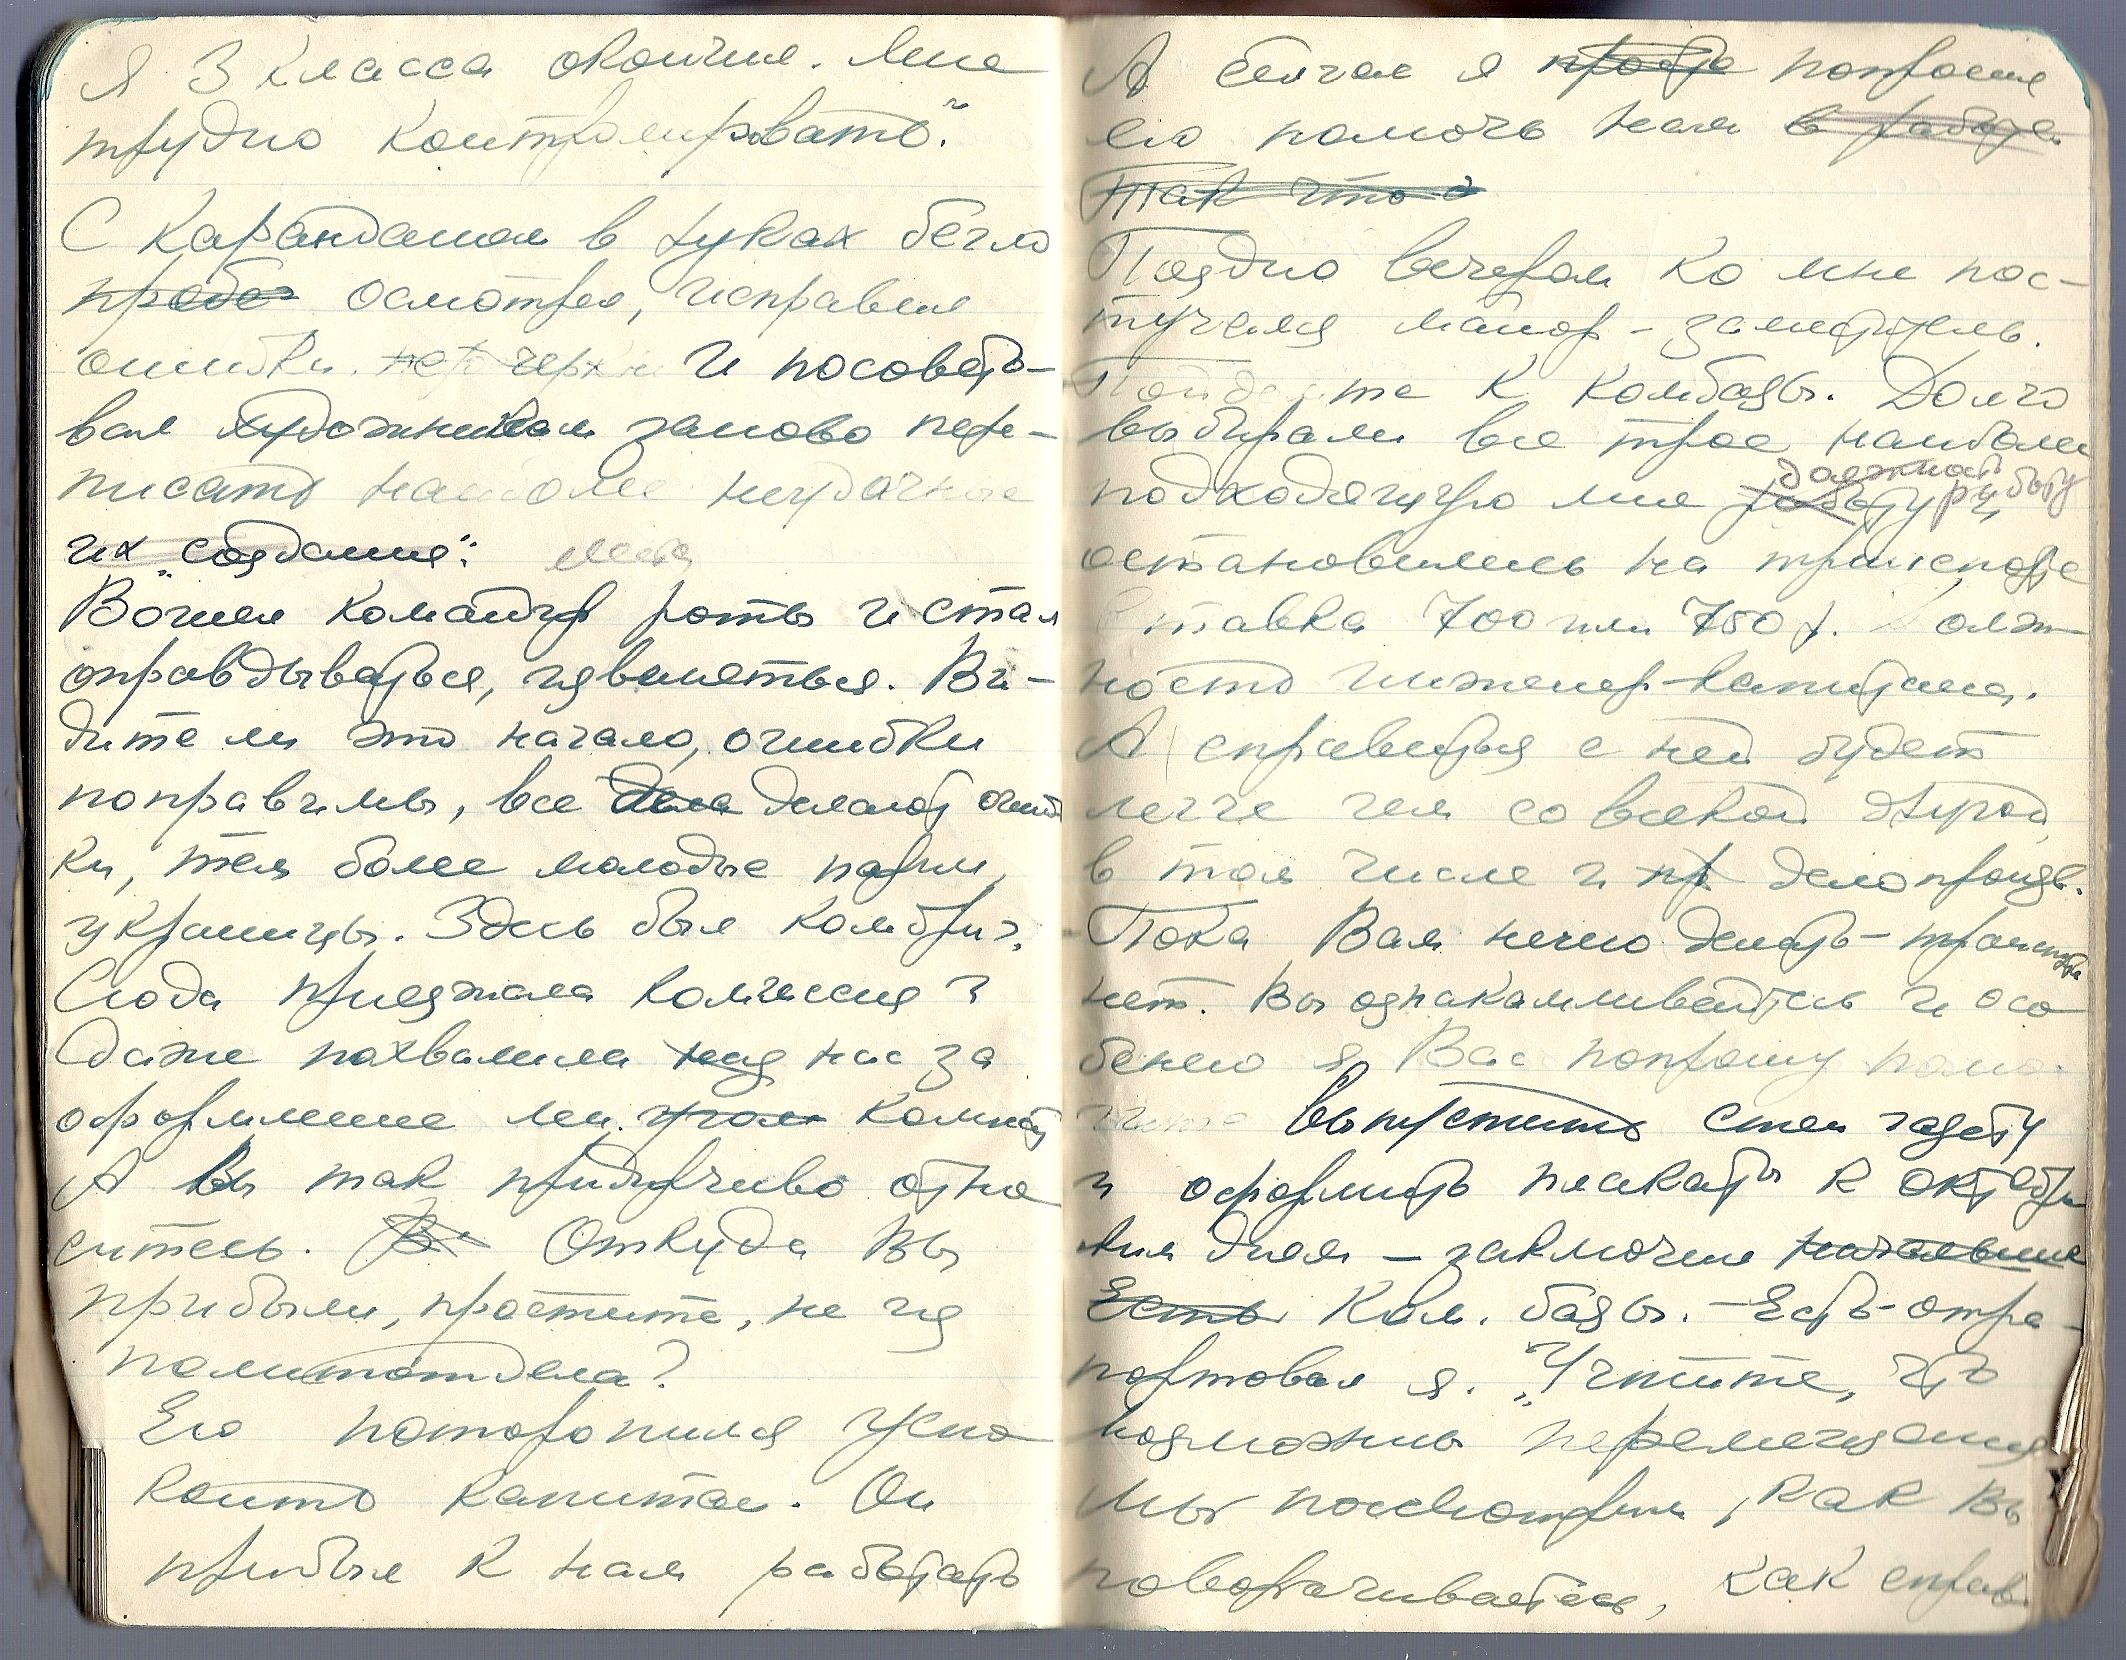 Я 3 класса окончил. Мне
трудно контролировать".
С карандашом в руках бегло
пробег осмотрел, исправил
ошибки и посовето-
вал художникам заново пере-
писать наиболее неудачные
их "создания":
Вошел командир роты и стал
оправдываться, извиняться. Ви-
дите ли это начало, ошибки
поправимы, все делают ошиб
ки, тем более молодые парни,
украинцы. Здесь был комбриг,
Сюда приезжала комиссия и
даже похвалила нас за
оформление лен. комнат
А Вы так придирчиво отно
ситесь. В Откуда Вы
прибыли, простите, не из
политотдела?
Его поторопился успо
коить капитан. Он
прибыл к нам работать
А сейчас я попросил
его помочь нам в работе.
Так что
Поздно вечером ко мне пос-
тучался майор - заместитель.
Пойдемте к комбазы. Долго
выбирали все трое наиболее
должность
подходящую мне работу и
остановились на транспорте
Ставка 700 или 750 р. Долж
ность инженер-капитана.
А справиться с ней будет
легче чем со всякой другой,
в том числе и пр делопроизв.
Пока Вам нечего делать - транспорта
нет. Вы ознакамливайтесь и осо
бенно я Вас попрошу помо-
гите выпустить стен газету
и оформить плакаты к октябрь
ким дням - заключил
Есть Ком. базы. - Есть - отра-
портовал я. "Учтите, что
возможны перемещения
Мы посмотрим, как Вы
поворачиваетесь, как справ